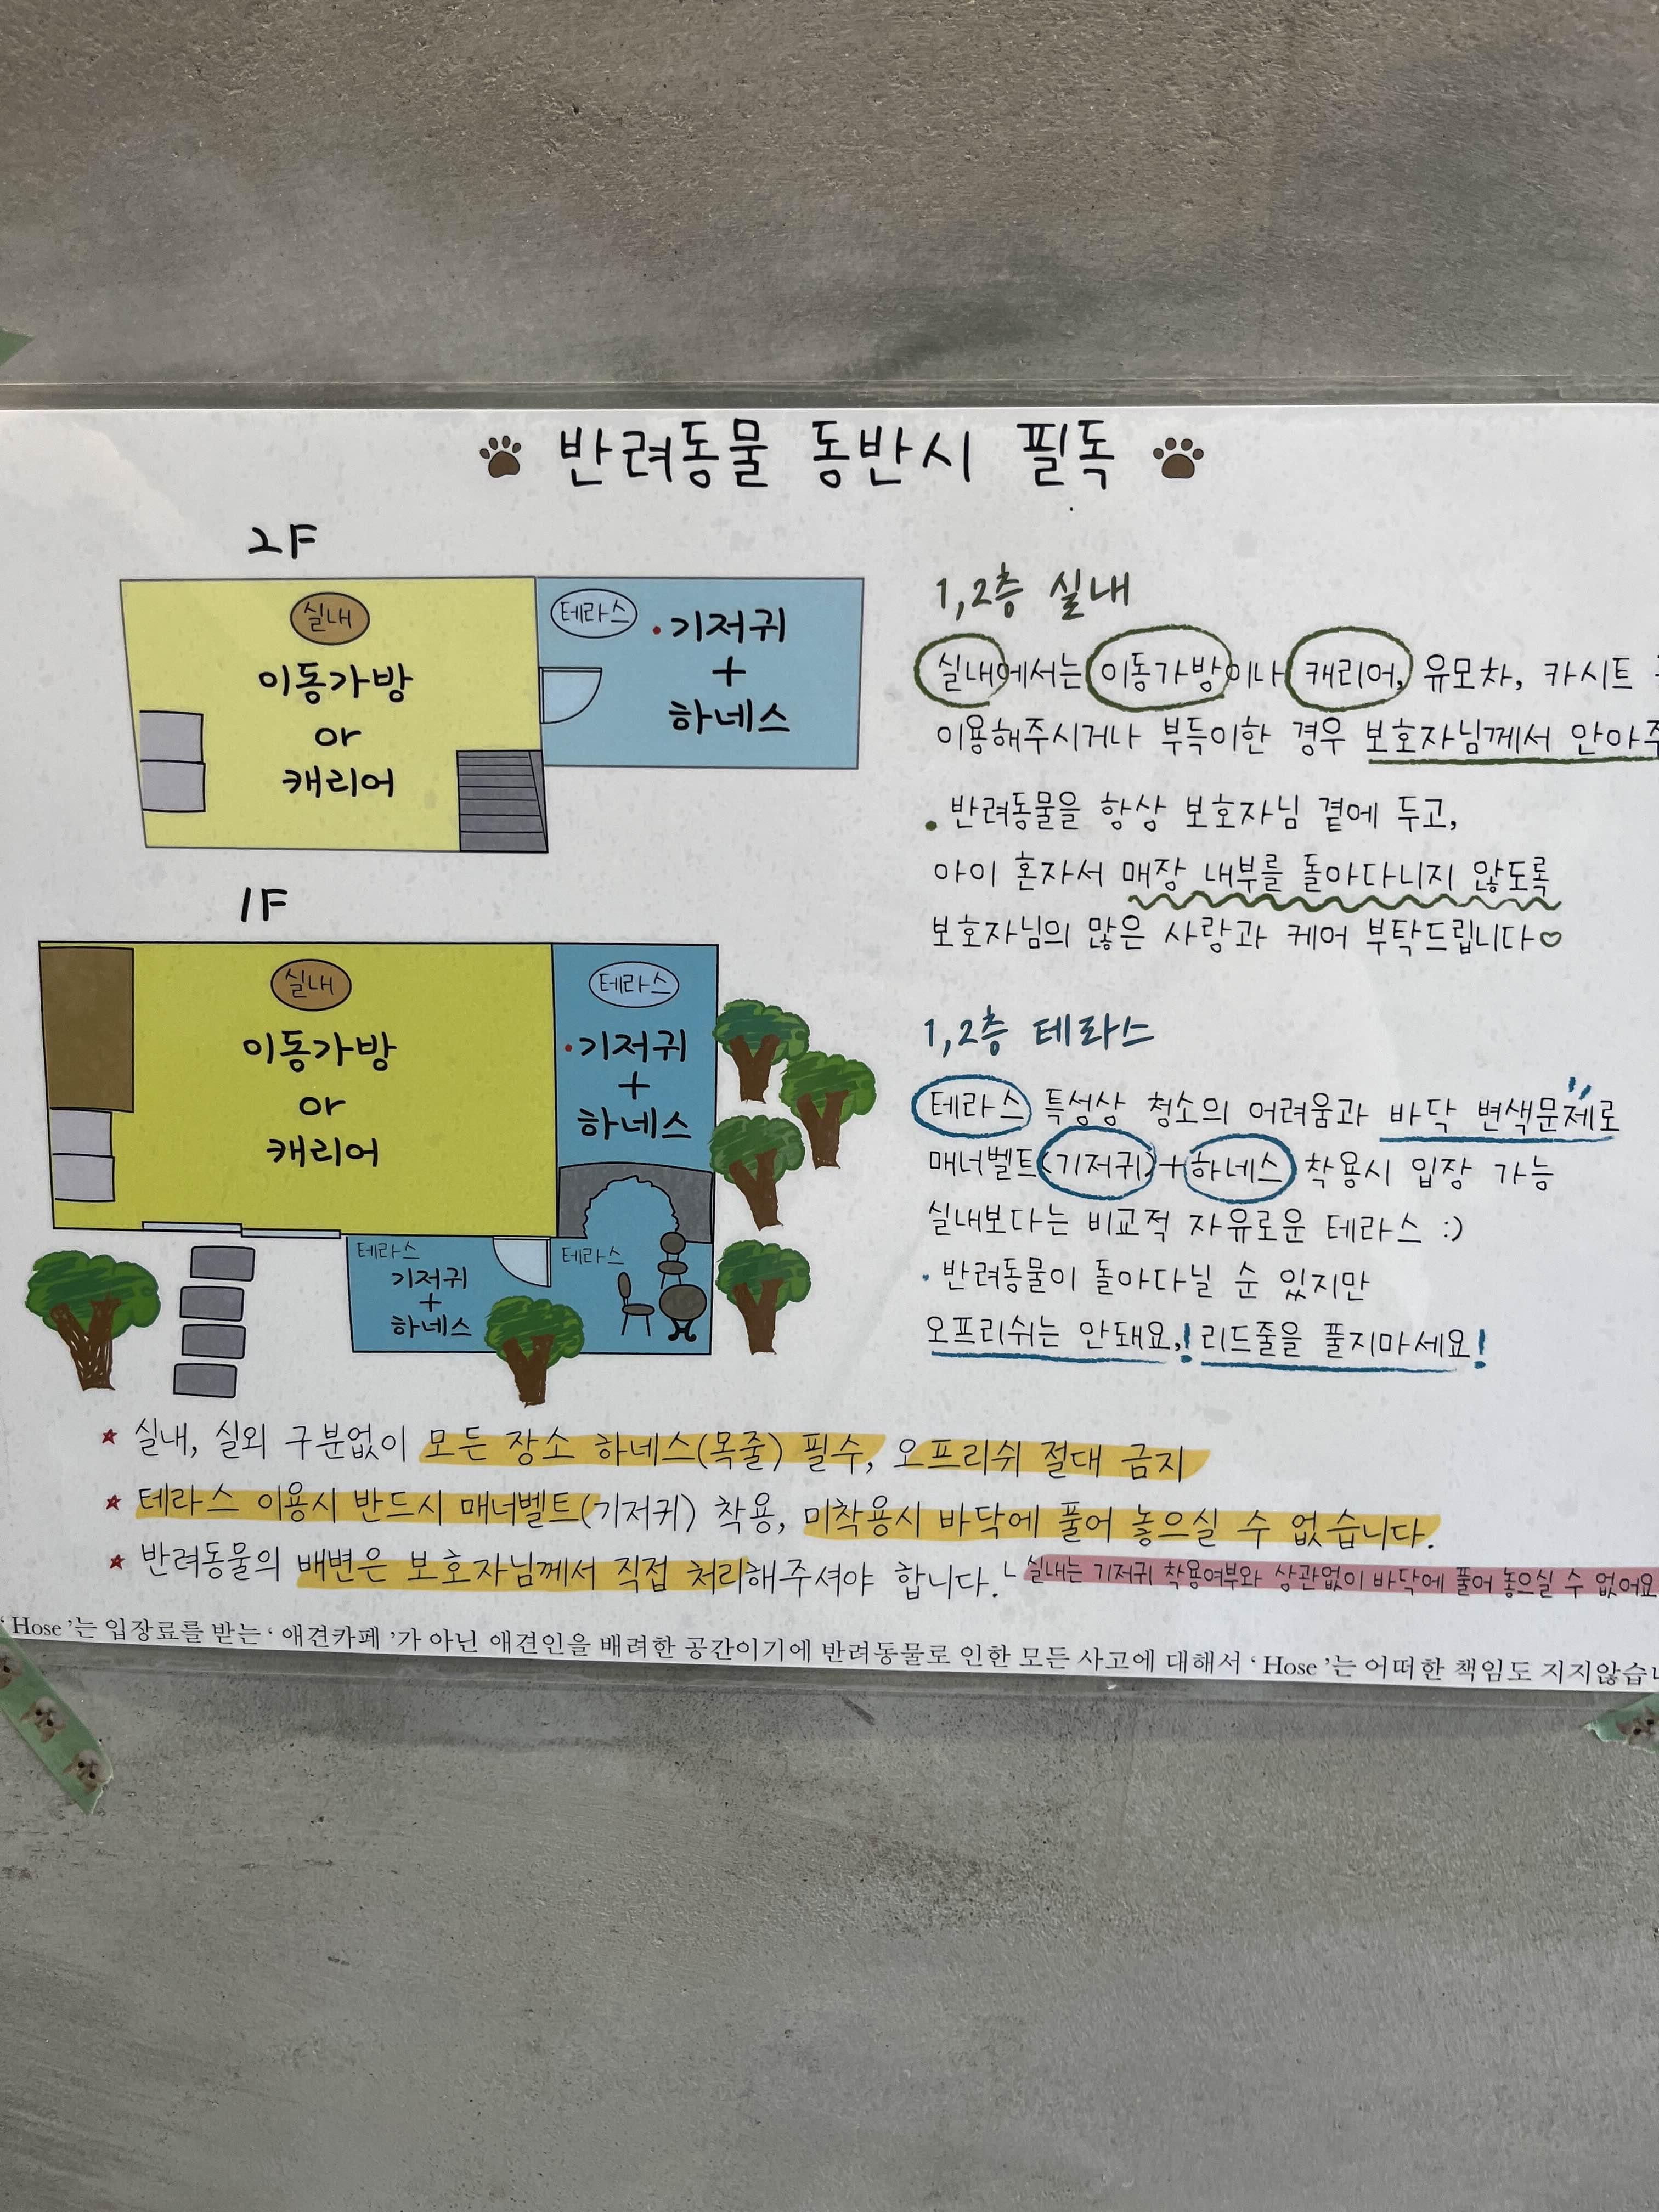 반려동물 동반시 필독
2F
실내
이동가방
or
캐리어
테라스
·기저귀
+
하네스
1F
실내
이동가방
or
캐리어
테라스
·기저귀
+
하네스
테라스
기저귀
+
하네스
테라스
1,2층 실내
실내에서는 이동가방이나 캐리어, 유모차, 카시트
이용해주시거나 부득이한 경우 보호자님께서 안아주
·반려동물을 항상 보호자님 곁에 두고,
아이 혼자서 매장 내부를 돌아다니지 않도록
보호자님의 많은 사랑과 케어 부탁드립니다♡
1,2층 테라스
테라스 특성상 청소의 어려움과 바닥 변색문제로
매너벨트(기저귀)+하네스 착용시 입장 가능
실내보다는 비교적 자유로운 테라스 :)
·반려동물이 돌아다닐 순 있지만
오프리쉬는 안돼요,! 리드줄을 풀지마세요!
★ 실내, 실외 구분없이 모든 장소 하네스(목줄) 필수, 오프리쉬 절대 금지
★ 테라스 이용시 반드시 매너벨트(기저귀) 착용, 미착용시 바닥에 풀어 놓으실 수 없습니다.
★ 반려동물의 배변은 보호자님께서 직접 처리해주셔야 합니다.
└ 실내는 기저귀 착용여부와 상관없이 바닥에 풀어 놓으실 수 없어요
‘Hose’는 입장료를 받는 ‘애견카페’가 아닌 애견인을 배려한 공간이기에 반려동물로 인한 모든 사고에 대해서 ‘Hose’는 어떠한 책임도 지지않습